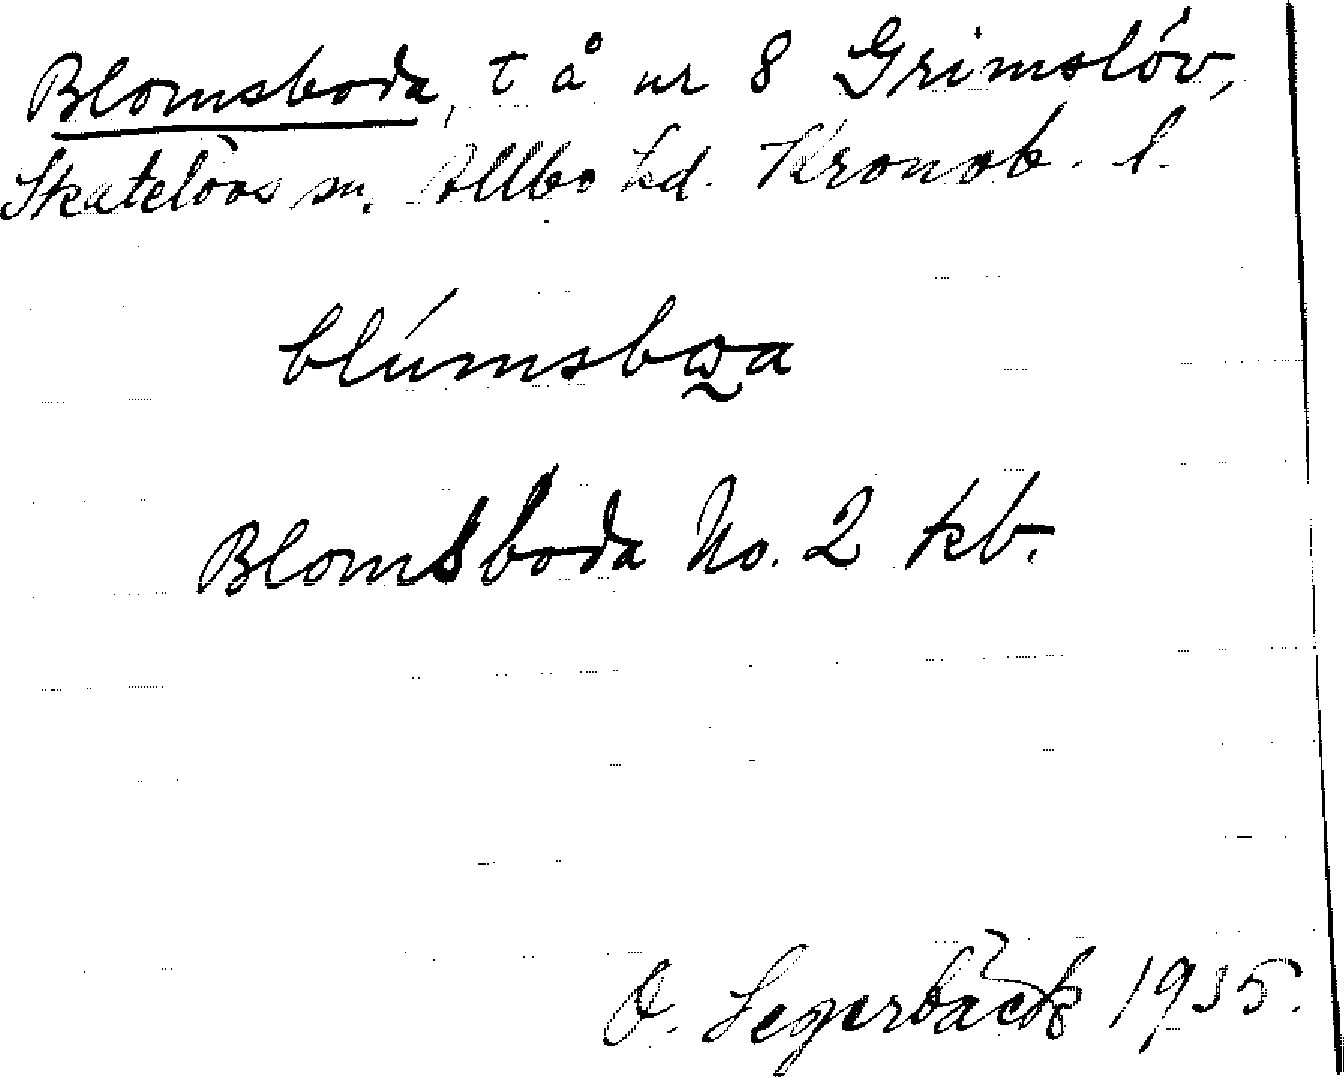 Blomsboda, t å nr 8 Grimslöv,
Skatelövs sn. Allbo hd. Kronob. l.
blúmsbω̰a
Blomsboda No. 2 kb.
O. Segerbäck 1935.